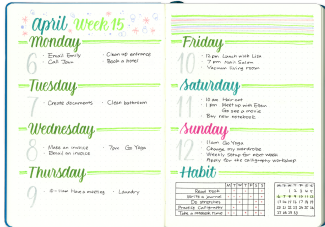 april Week 15
Monday
6
- Email Emily
- Call Jam
- Clean up entrance
- Book a hotel
Tuesday
7
- Create documents
- Clean bathroom
Wednesday
8
- Make an invoice
Send an invoice
- 7pm Go Yoga
Thursday
9
- 11am Have a meeting
- Laundry
Friday
10
- 12pm Lunch with Lisa
- 7 pm Nail Salon
- Vacuum living room
Saturday
11
- 10 am Hair cut
- 1 pm Meet up with Ellen
Go see a movie
- Buy new notebook
Sunday
12
- 11am Go Yoga
- Change my wardrobe
- Weekly Setup for next week
- Apply for the calligraphy workshop
Habit
M T W T F S S
Read book
Write a journal
Do exercises
Practice Calligraphy
Take a 10,000 run